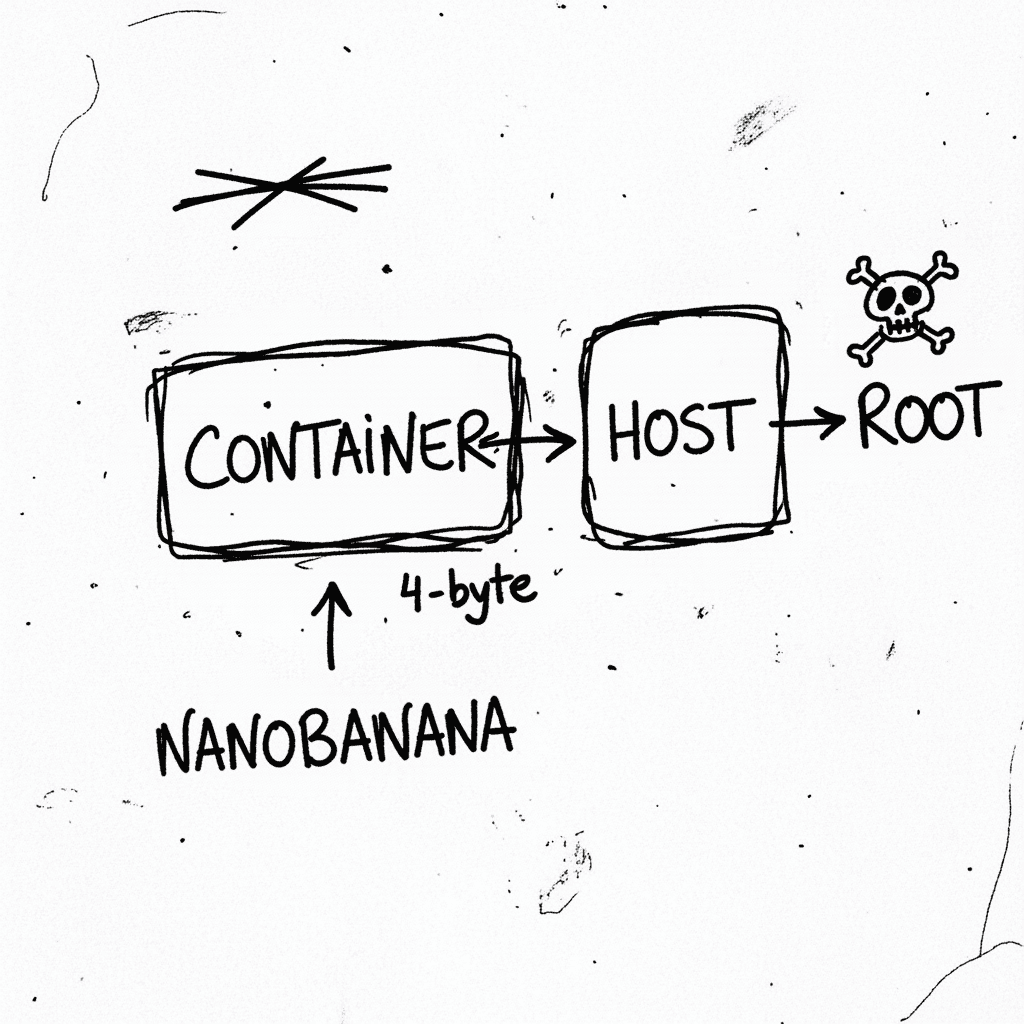 CONTAINER
HOST
ROOT
4-byte
NANOBANANA